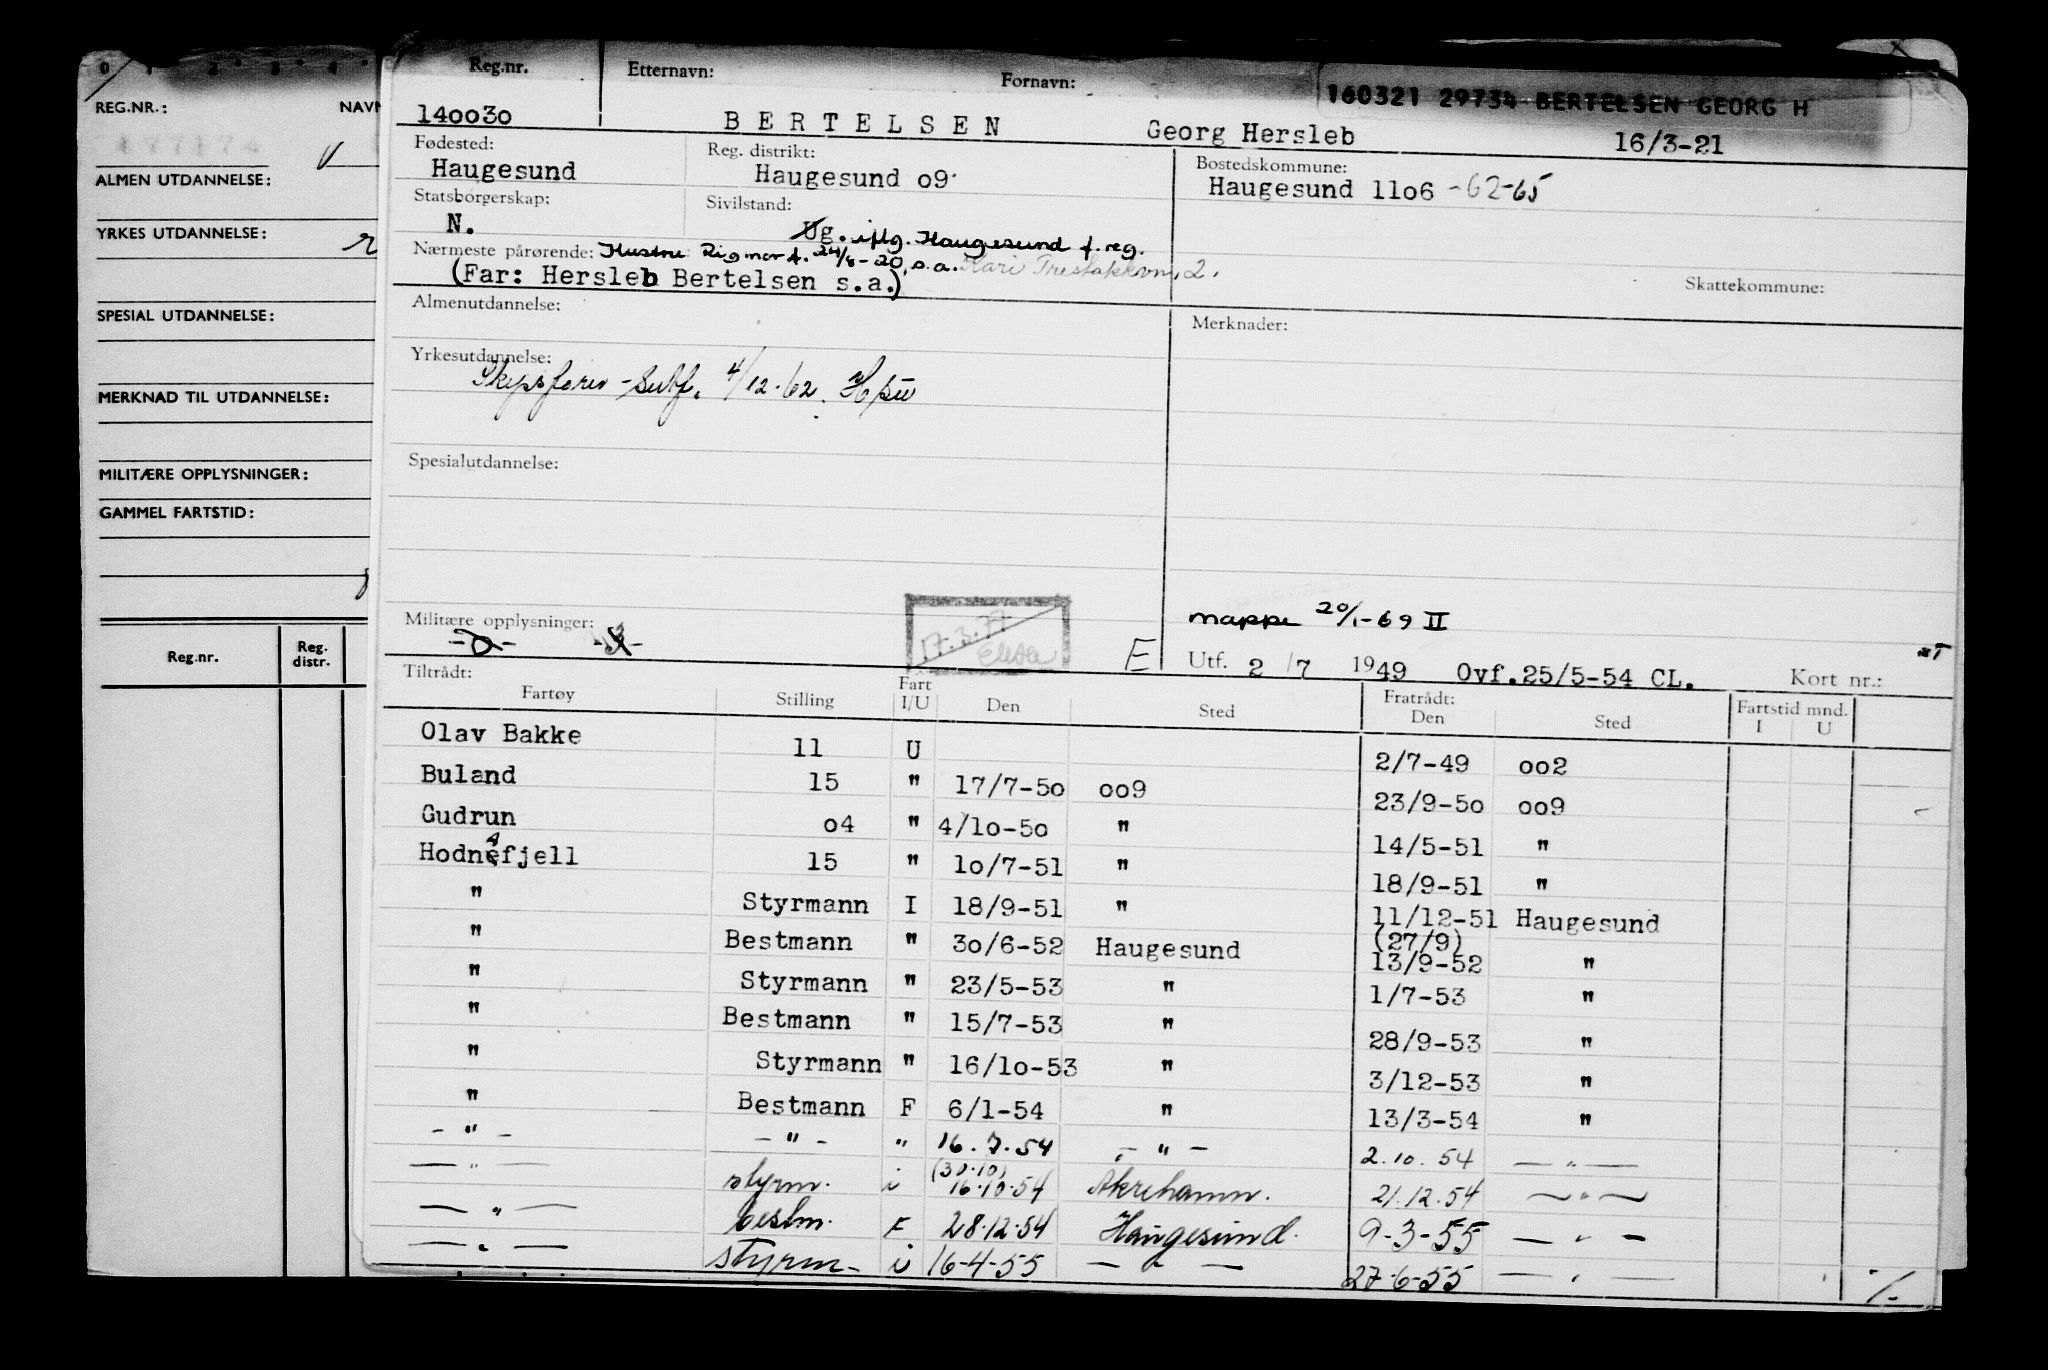 0 1 2 3 4
REG.NR.: NAVN
177174
ALMEN UTDANNELSE:
YRKES UTDANNELSE:
SPESIAL UTDANNELSE:
MERKNAD TIL UTDANNELSE:
MILITÆRE OPPLYSNINGER:
GAMMEL FARTSTID:
Reg.nr. Reg. distr.
Reg.nr. Etternavn: Fornavn: 160321 29734 BERTELSEN GEORG H
140030 BERTELSEN Georg Hersleb 16/3-21
Fødested: Reg. distrikt: Bostedskommune:
Haugesund Haugesund 09 Haugesund 1106 -62-65
Statsborgerskap: Sivilstand:
N. Ug. iflg. Haugesund f. reg.
Nærmeste pårørende: Hustru Rigmor f. 24/8-20, s.a. Kari 2.
(Far: Hersleb Bertelsen s.a.) Skattekommune:
Almenutdannelse: Merknader:
Yrkesutdannelse:
Skipsfører - 4/12-62.
Spesialutdannelse:
mappe 20/1-69 II
Militære opplysninger: 17.3.77
E Utf. 2/7 1949 Ovf. 25/5-54 CL. Kort nr.:
Tiltrådt: Fart Fratrådt: Fartstid mnd.
Fartøy Stilling I/U Den Sted Den Sted I U
Olav Bakke 11 U 2/7-49 002
Buland 15 " 17/7-50 009 23/9-50 009
Gudrun 04 " 4/10-50 " 14/5-51 "
Hodnefjell 15 " 10/7-51 " 18/9-51 "
" Styrmann I 18/9-51 " 11/12-51 Haugesund
" Bestmann " 30/6-52 Haugesund (27/9) 13/9-52 "
" Styrmann " 23/5-53 " 1/7-53 "
" Bestmann " 15/7-53 " 28/9-53 "
" Styrmann " 16/10-53 " 3/12-53 "
" Bestmann F 6/1-54 " 13/3-54 "
- " - - " - " 16.7.54 - " - 2.10.54 - " -
- " - styrm. i (30.10) 16.10.54 Åkrehamn. 21.12.54 - " -
- " - bestm. F 28.12.54 Haugesund. 9-3-55 - " -
- " - styrm- i 16-4-55 - " - 27-6-55 - " -